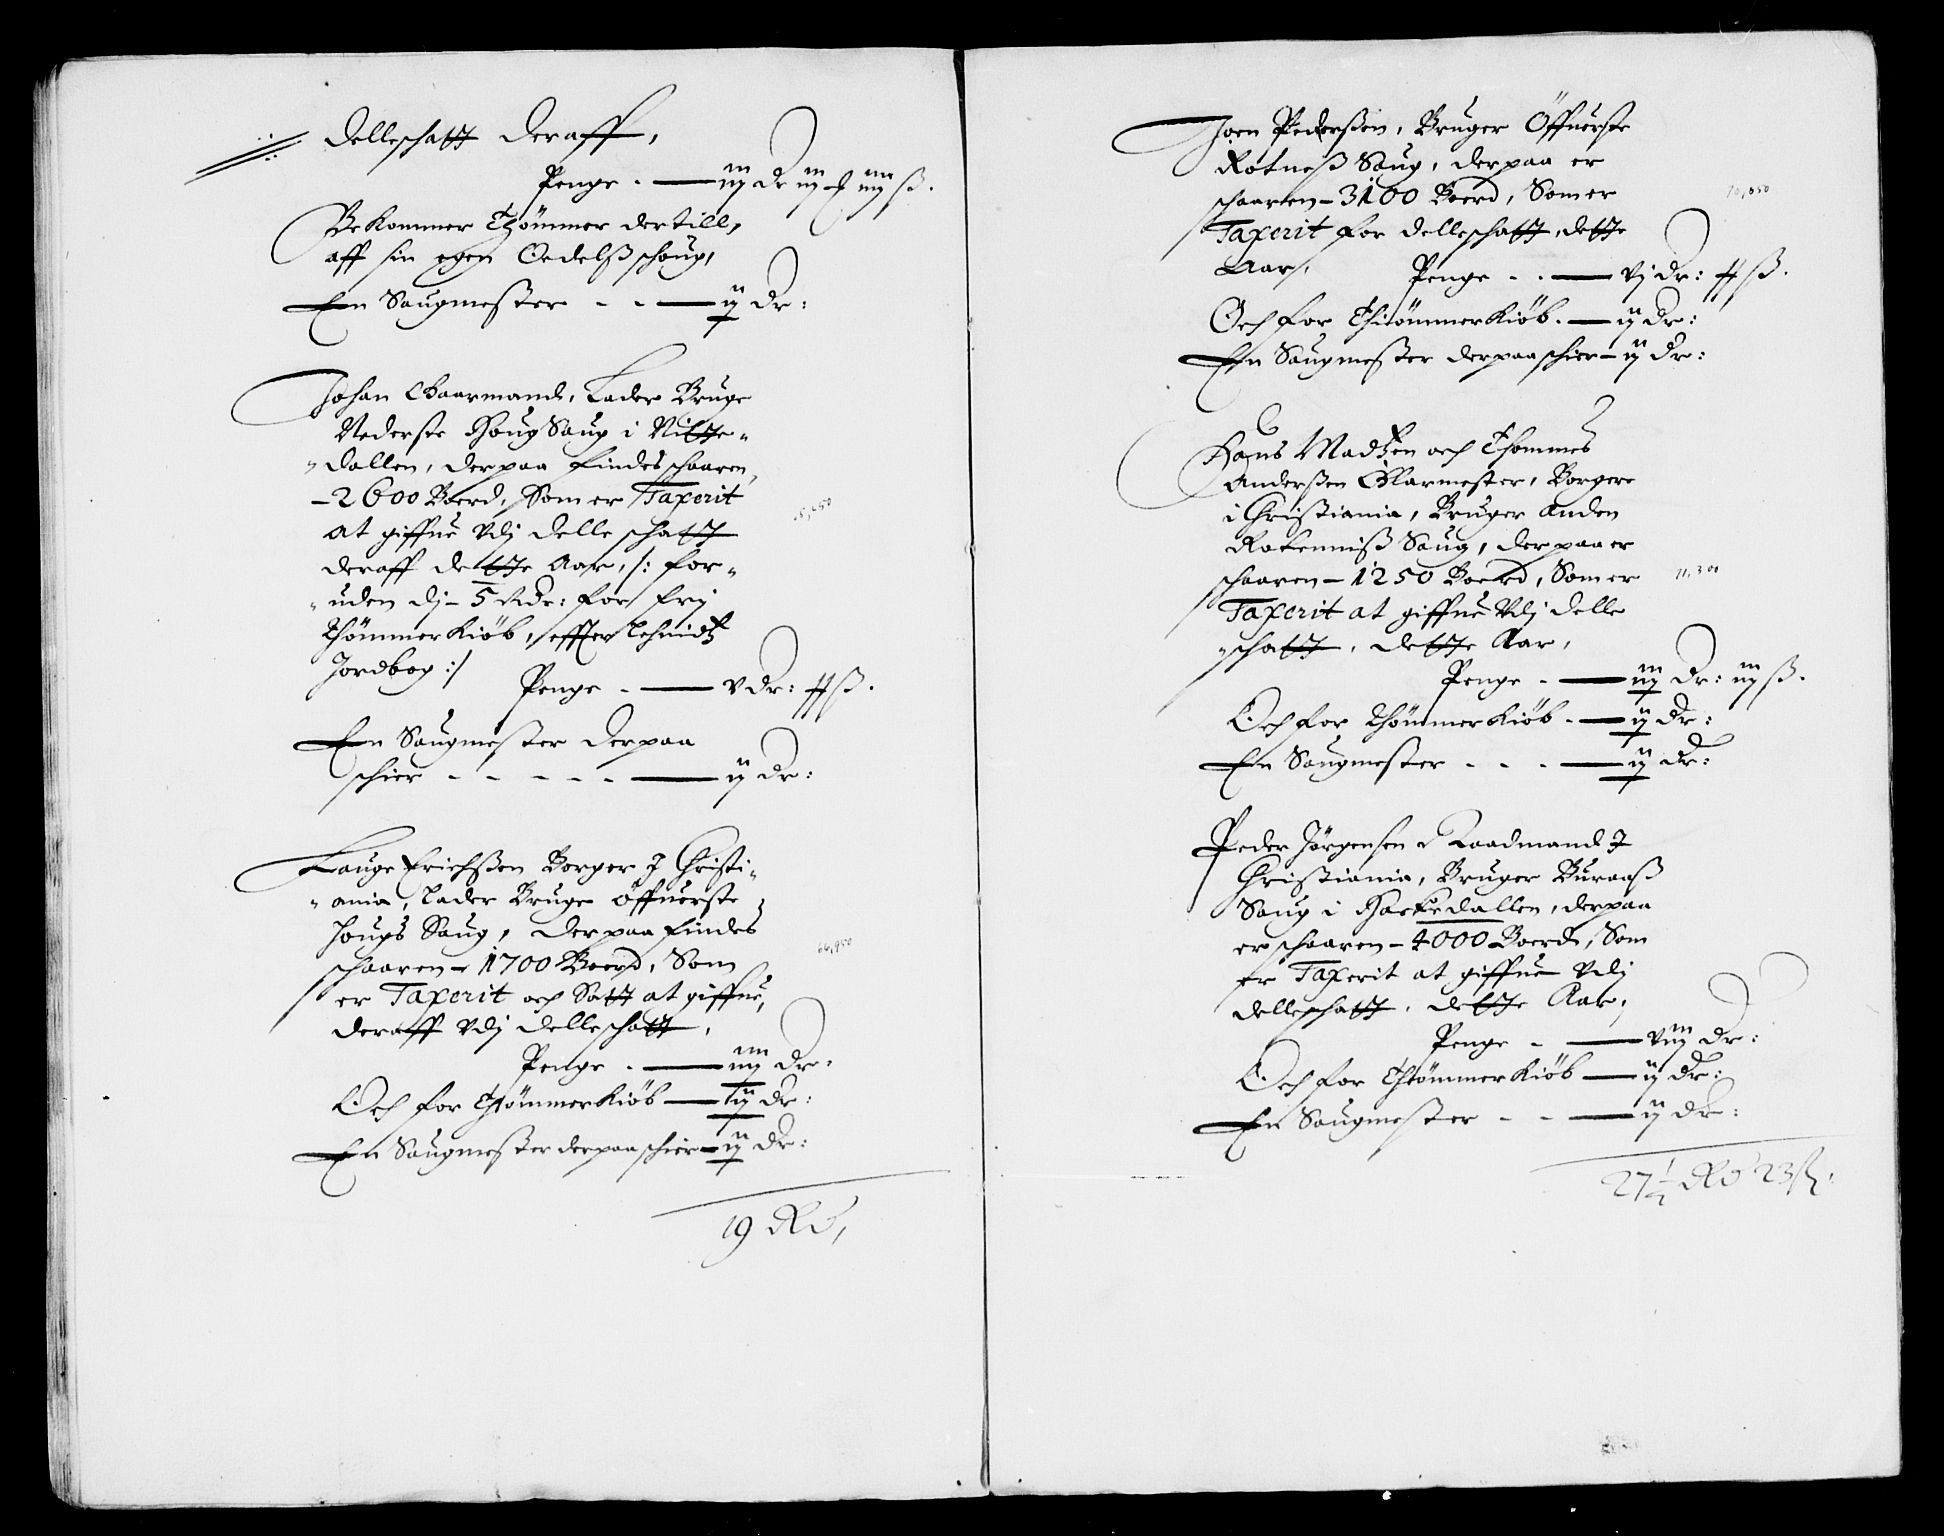 delleschatt deraff,
Penge - — iij dr iij ß.
Bekommer Thömmer dertill,
aff sin egen Oedelß schoug,
En Saugmester - - — ij dr:
Johan Gaarmand, Lader Bruge
Nederste Houg Saug i Nitte-
dallen, derpaa findes schaaren
- 2600 Boerd, Som er Taxerit
at giffue Vdj delleschatt
deraff dette Aar, /: for-
uden dj - 5 Rdr: for frj
Thömmer Kiöb, effter Lehnidtz
Jordbog :/
Penge - — v dr: ß.
En Saugmester derpaa
schier - - - - - — ij dr:
Lauge Erichßen Borger J Christi-
ania, Lader Bruge Öffuerste
Hougs Saug, derpaa findes
schaaren - 1700 Boerd, Som
er Taxerit och Satt at giffue,
deraff Vdj delleschatt,
Penge - — iiij dr:
Och for Thömmer Kiöb — ij dr:
En Saugmester derpaa schier — ij dr:
66,950
19 Rd,
Joen Pederßen, Bruger Öffuerste
Rotneß Saug, derpaa er
schaaren - 3100 Boerd, Som er
Taxerit for delleschatt, dette
Aar, Penge - - — vj dr: ß.
Och for Thömmer Kiöb - — ij dr:
En Saugmester derpaa schier - ij dr:
Hans Madtzen och Thommes
Anderßen Glarmester, Borgere
i Christiania, Bruger Anden
Rotenniß Saug, derpaa er
schaaren - 1250 Boerd, Som er
11,300
Taxerit at giffue Vdj delle
schatt, dette Aar,
Penge - — iij dr: iij ß.
Och for Thömmer Kiöb - — ij dr:
En Saugmester - - - — ij dr:
Peder Jörgensen Raadmand J
Christiania, Bruger Buraaß
Saug i Hackedallen, derpaa
er schaaren - 4000 Boerd, Som
er Taxerit at giffue Vdj
delleschatt, dette Aar,
Penge - — viij dr:
Och for Thömmer Kiöb — ij dr:
En Saugmester - - — ij dr:
27 Rd 23 ß: